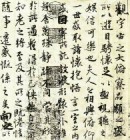 觀宇宙之大俯察品類之盛
所以遊目騁懷足以極視聽之
娛信可樂也夫人之相與俯仰
一世或取諸懷抱悟言一室之內
或因寄所託放浪形骸之外雖
趣舍萬殊靜躁不同當其欣
於所遇暫得於己怏然自足不
知老之將至及其所之既惓情
隨事遷感慨係之矣向之所